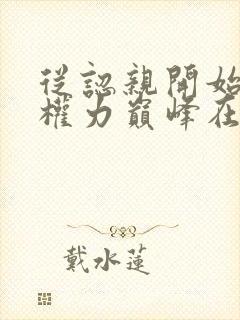 從認親開始
權力巔峰在
戴水蓮